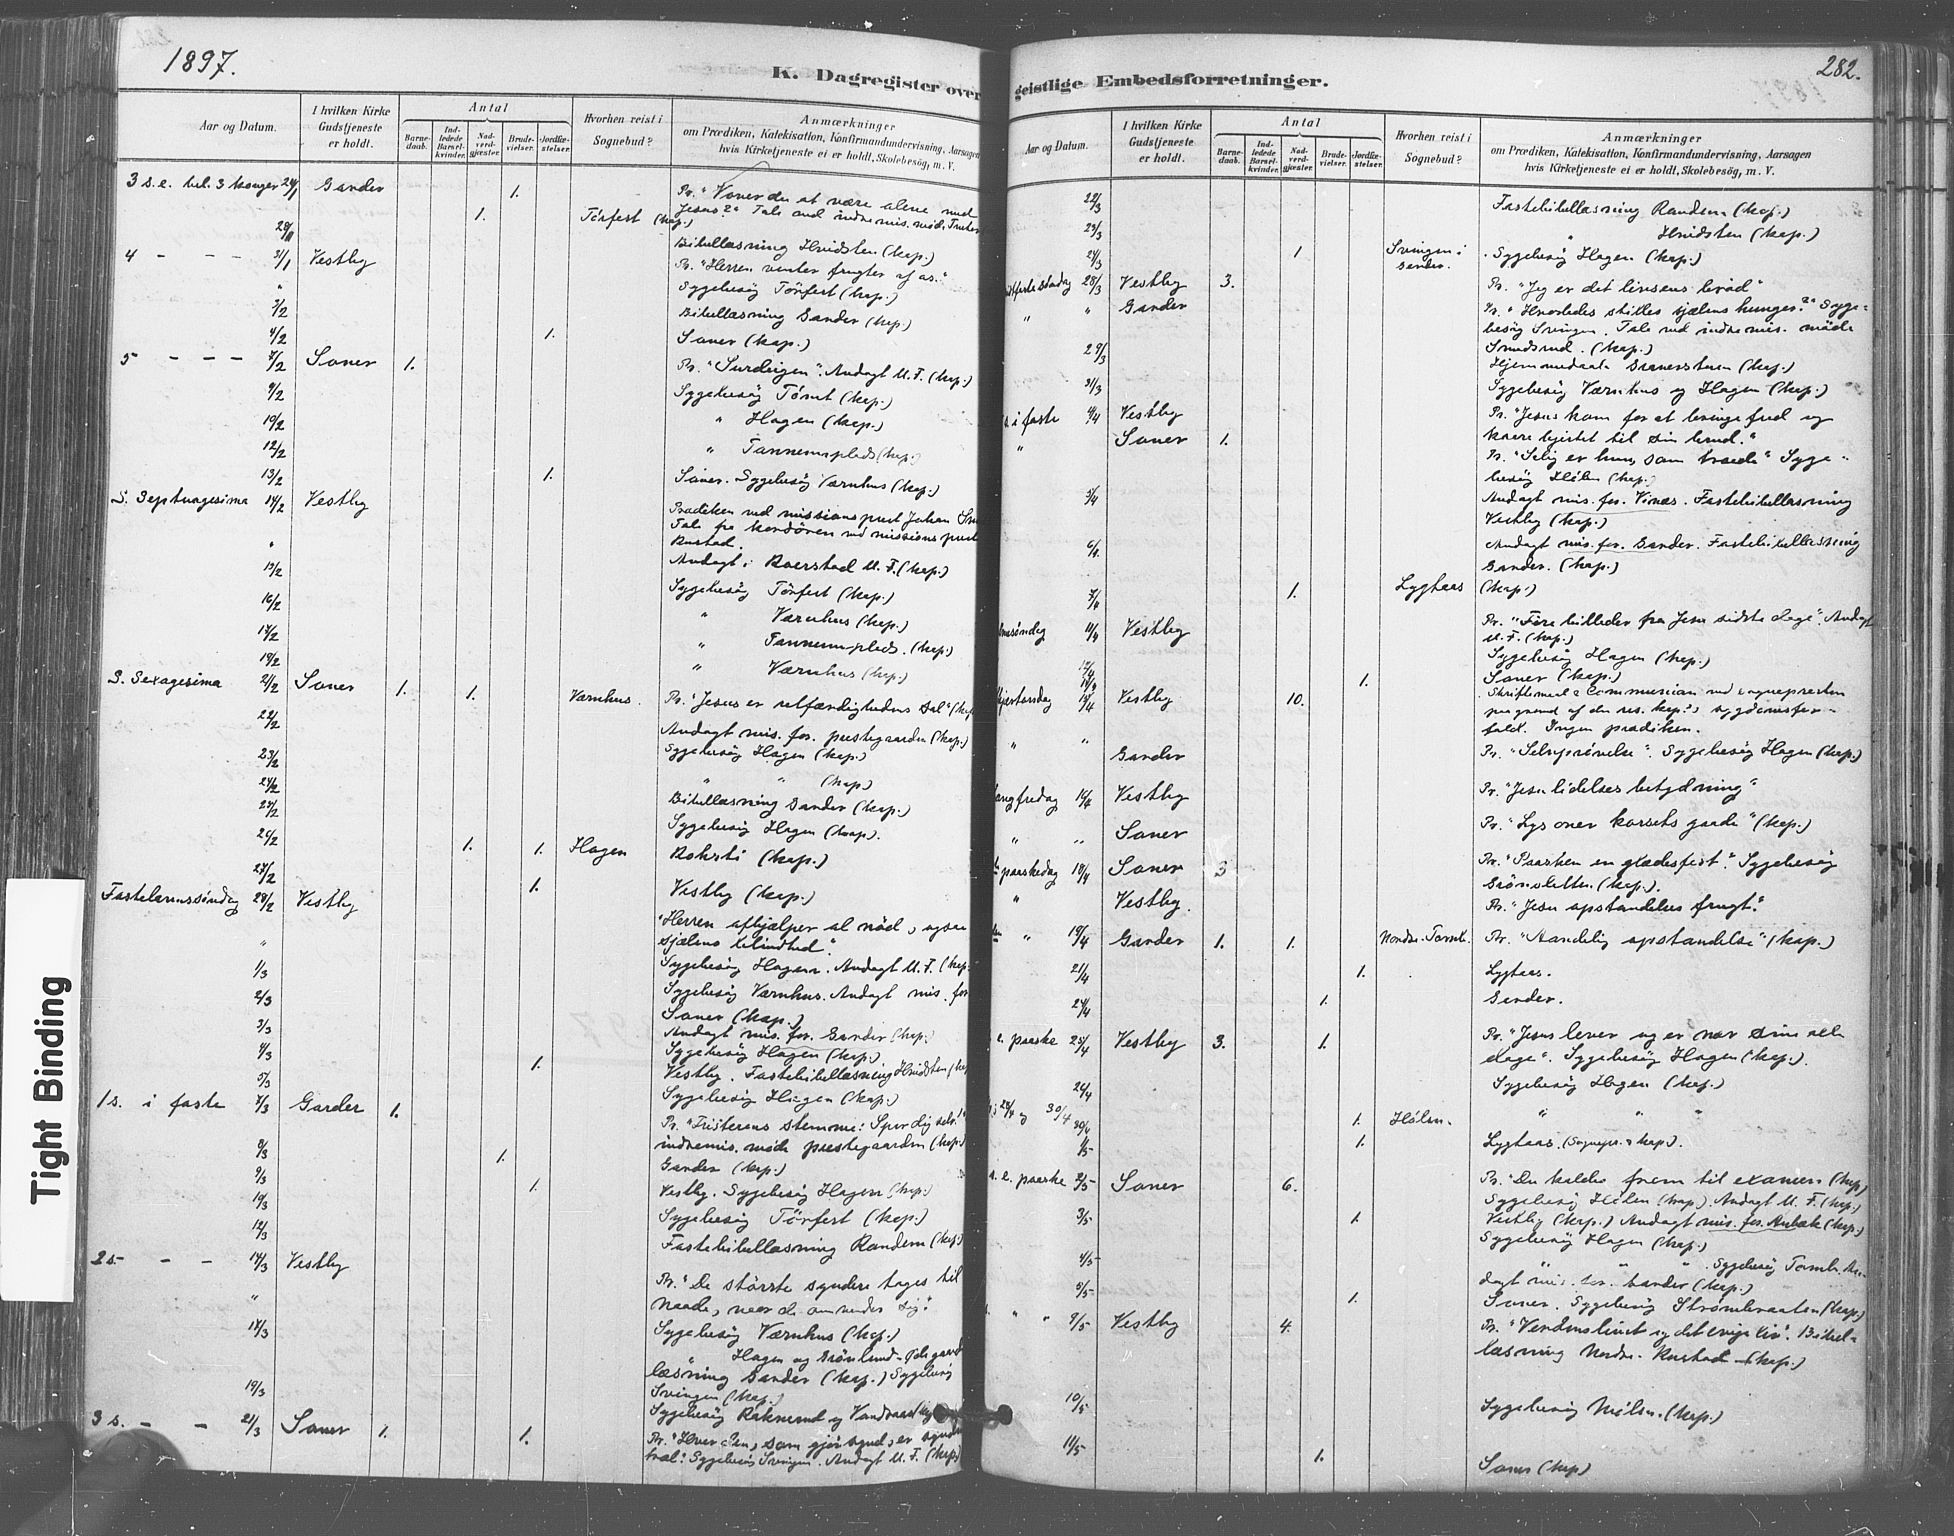 1897.
K. Dagregister over
Aar og Datum.
I hvilken Kirke Gudstjeneste er holdt.
Antal
Barne-daab.
Ind-ledede Barsel-kvinder.
Nad-verd-gjæster.
Brude-vielser.
Jordfæ-stelser.
Hvorhen reist i Sognebud?
Anmærkninger
om Prædiken, Katekisation, Konfirmandundervisning, Aarsagen
hvis Kirketjeneste ei er holdt, Skolebesög, m. V.
3 s. e. hel. 3 konger 24/1 Garder 1. Pr. "Vover du at være alene med
1. Törfest (kap.) Jesus?" Tale ved indre mis. möde
Bibellæsning Hvidsten (kap.)
4 - - - 31/1 Vestby Pr. "Herren venter frugter af os."
" Sygebesög Törfest (kap.)
2/2 Bibellæsning Garder (kap.)
4/2 1. Soner (kap.)
5 - - - 7/2 Soner 1. Pr. "Surdeigen". Andagt U. F. (kap.)
9/2 Sygebesög (kap.)
10/2 " Hagen (kap.)
12/2 " (kap.)
13/2 1. Soner. Sygebesög Værnhus (kap.)
S. Septuagesima 14/2 Vestby Prædiken ved missionsprest Johan
Tale fra kordören ved missionsprest
Rustad.
" Andagt i Roerstad U. F. (kap.)
15/2 Sygebesög Törfest (kap.)
16/2 " Værnhus (kap.)
17/2 " (kap.)
19/2 " Værnhus (kap.)
S. Sexagesima 21/2 Soner 1. 1. Værnhus. Pr. "Jesus er retfærdighedens sol" (kap.
22/2 Andagt mis. for. prestegaarden (kap.)
23/2 Sygebesög Hagen (kap.)
24/2 " " (kap)
25/2 Bibellæsning Garder (kap.)
26/2 Sygebesög Hagen (kap).
1. 1. Hagen (kap.)
27/2 1. Vestby (kap.)
Fastelavnssöndag 28/2 Vestby "Herren afhjælper al nöd, ogsaa
sjælens blindhed".
" Sygebesög Hagen. Andagt U. F. (kap.
1/3 Sygebesög Værnhus. Andagt mis. for
2/3 Soner (kap.)
3/3 Andagt mis. for. Garder (kap.)
4/3 Sygebesög Hagen (kap.)
5/3 1. Vestby. Fastebibellæsning Hvidsten (kap
1 s. i faste 7/3 Garder 1. Sygebesög Hagen (kap.)
Pr. "Fristerens stemme: Spar dig selv!"
8/3 indremis. möde prestegaarden (kap.)
9/3 1. Garder (kap.)
10/3 1. Vestby. Sygebesög Hagen (kap.)
12/3 Sygebesög Törfest (kap.)
Fastebibellæsning Randem (kap.)
2 s. - - 14/3 Vestby Pr. "De störste syndere tages til
" naade, naar de omvender sig."
18/3 Sygebesög Værnhus (kap.)
" Hagen og Grönlund
læsning Garder (kap.) Sygebesög
19/3 Svingen (kap.)
Sygebesög og (kap
3 s. - - 21/3 Soner 1. 1. Pr. "Hver den, som gjör synd, er syndens
træl." Sygebesög Svingen. Andagt U. F. (kap)
282.
geistlige Embedsforretninger.
Aar og Datum.
I hvilken Kirke Gudstjeneste er holdt.
Antal
Barne-daab.
Ind-ledede Barsel-kvinder.
Nad-verd-gjæster.
Brude-vielser.
Jordfæ-stelser.
Hvorhen reist i Sognebud?
Anmærkninger
om Prædiken, Katekisation, Konfirmandundervisning, Aarsagen
hvis Kirketjeneste ei er holdt, Skolebesög, m. V.
22/3 Fastebibellæsning Randem (kap.)
23/3 " Hvidsten (kap.)
24/3 1 Svingen i Garder. Sygebesög Hagen (kap.)
28/3 Vestby 3. Pr. "Jeg er det livsens bröd"
" " Garder Pr. "Hvorledes stilles sjælens hunger?" Syge-
besög Svingen. Tale ved indre mis. möde
Smedsrud. (kap.)
29/3 (kap.)
31/3 Sygebesög Værnhus og Hagen (kap.)
s. i faste 4/4 Vestby Pr. "Jesus kom for at bringe fred og
kaare hjertet til sin brud."
" Soner 1. Pr. "Salig er hun, som troede" Syge-
besög Hölen (kap.)
5/4 Andagt mis. for. Vinæs. Fastebibellæsning
Vestby (kap.)
6/4 Andagt mis. for. Garder. Fastebibellæsning
Garder. (kap.)
7/4 1. Lygtaas (kap.)
11/4 Vestby Pr. "Fire billeder fra Jesu sidste dage". Andagt
U. F. (kap.)
12/4 Sygebesög Hagen (kap.)
14/4 1. Soner (kap.)
skjærtorsdag 15/4 Vestby 10. Skriftemaal & Communion ved sognepresten
paa grund af den res. kap.'s sygdomsfor-
fald. Ingen prædiken.
" " Garder Pr. "Selvprövelse". Sygebesög Hagen (kap.)
langfredag 16/4 Vestby Pr. "Jesu lidelses betydning"
" " Soner Pr. "Lys over korsets gaade" (kap.)
paaskedag 18/4 Soner 3 Pr. "Paasken en glædesfest." Sygebesög
Grönsletten (kap.).
" Vestby. Pr. "Jesu opstandelses frugt."
" 19/4 Garder 1. 1. Nordre. Tomb. Pr. "Aandelig opstandelse" (kap.)
21/4 1. Lygtaas.
24/4 1. Garder.
e. paaske 25/4 Vestby 3. 1. Pr. "Jesus lever og er nær sine alle
dage". Sygebesög Hagen (kap.).
26/4 Sygebesög Hagen (kap.)
28/4 og 30/4 1. Hölen. " " "
1/5 1. Lygtaas. (Sognepr. & kap.).
s. e. paaske 2/5 Soner 6. Pr. "Du kaldes frem til examen (kap)
Sygebesög Hölen (kap.) Andagt U. F. (kap.)
3/5 1. Vestby (kap.) Andagt mis. for. (kap.)
Sygebesög Hagen (kap.)
4/5 " " " Sygebesög Tomb. An-
5/5 dagt mis. for. Garder (kap.)
1. Soner. Sygebesög Strömbraaten (kap.)
" " 9/5 Vestby 4. Pr. "Verdenslivet og det evige liv". Bibel-
læsning Nordre. Rustad (kap.)
10/5 Sygebesög (kap.)
11/5 1. Soner (kap)
Tight Binding